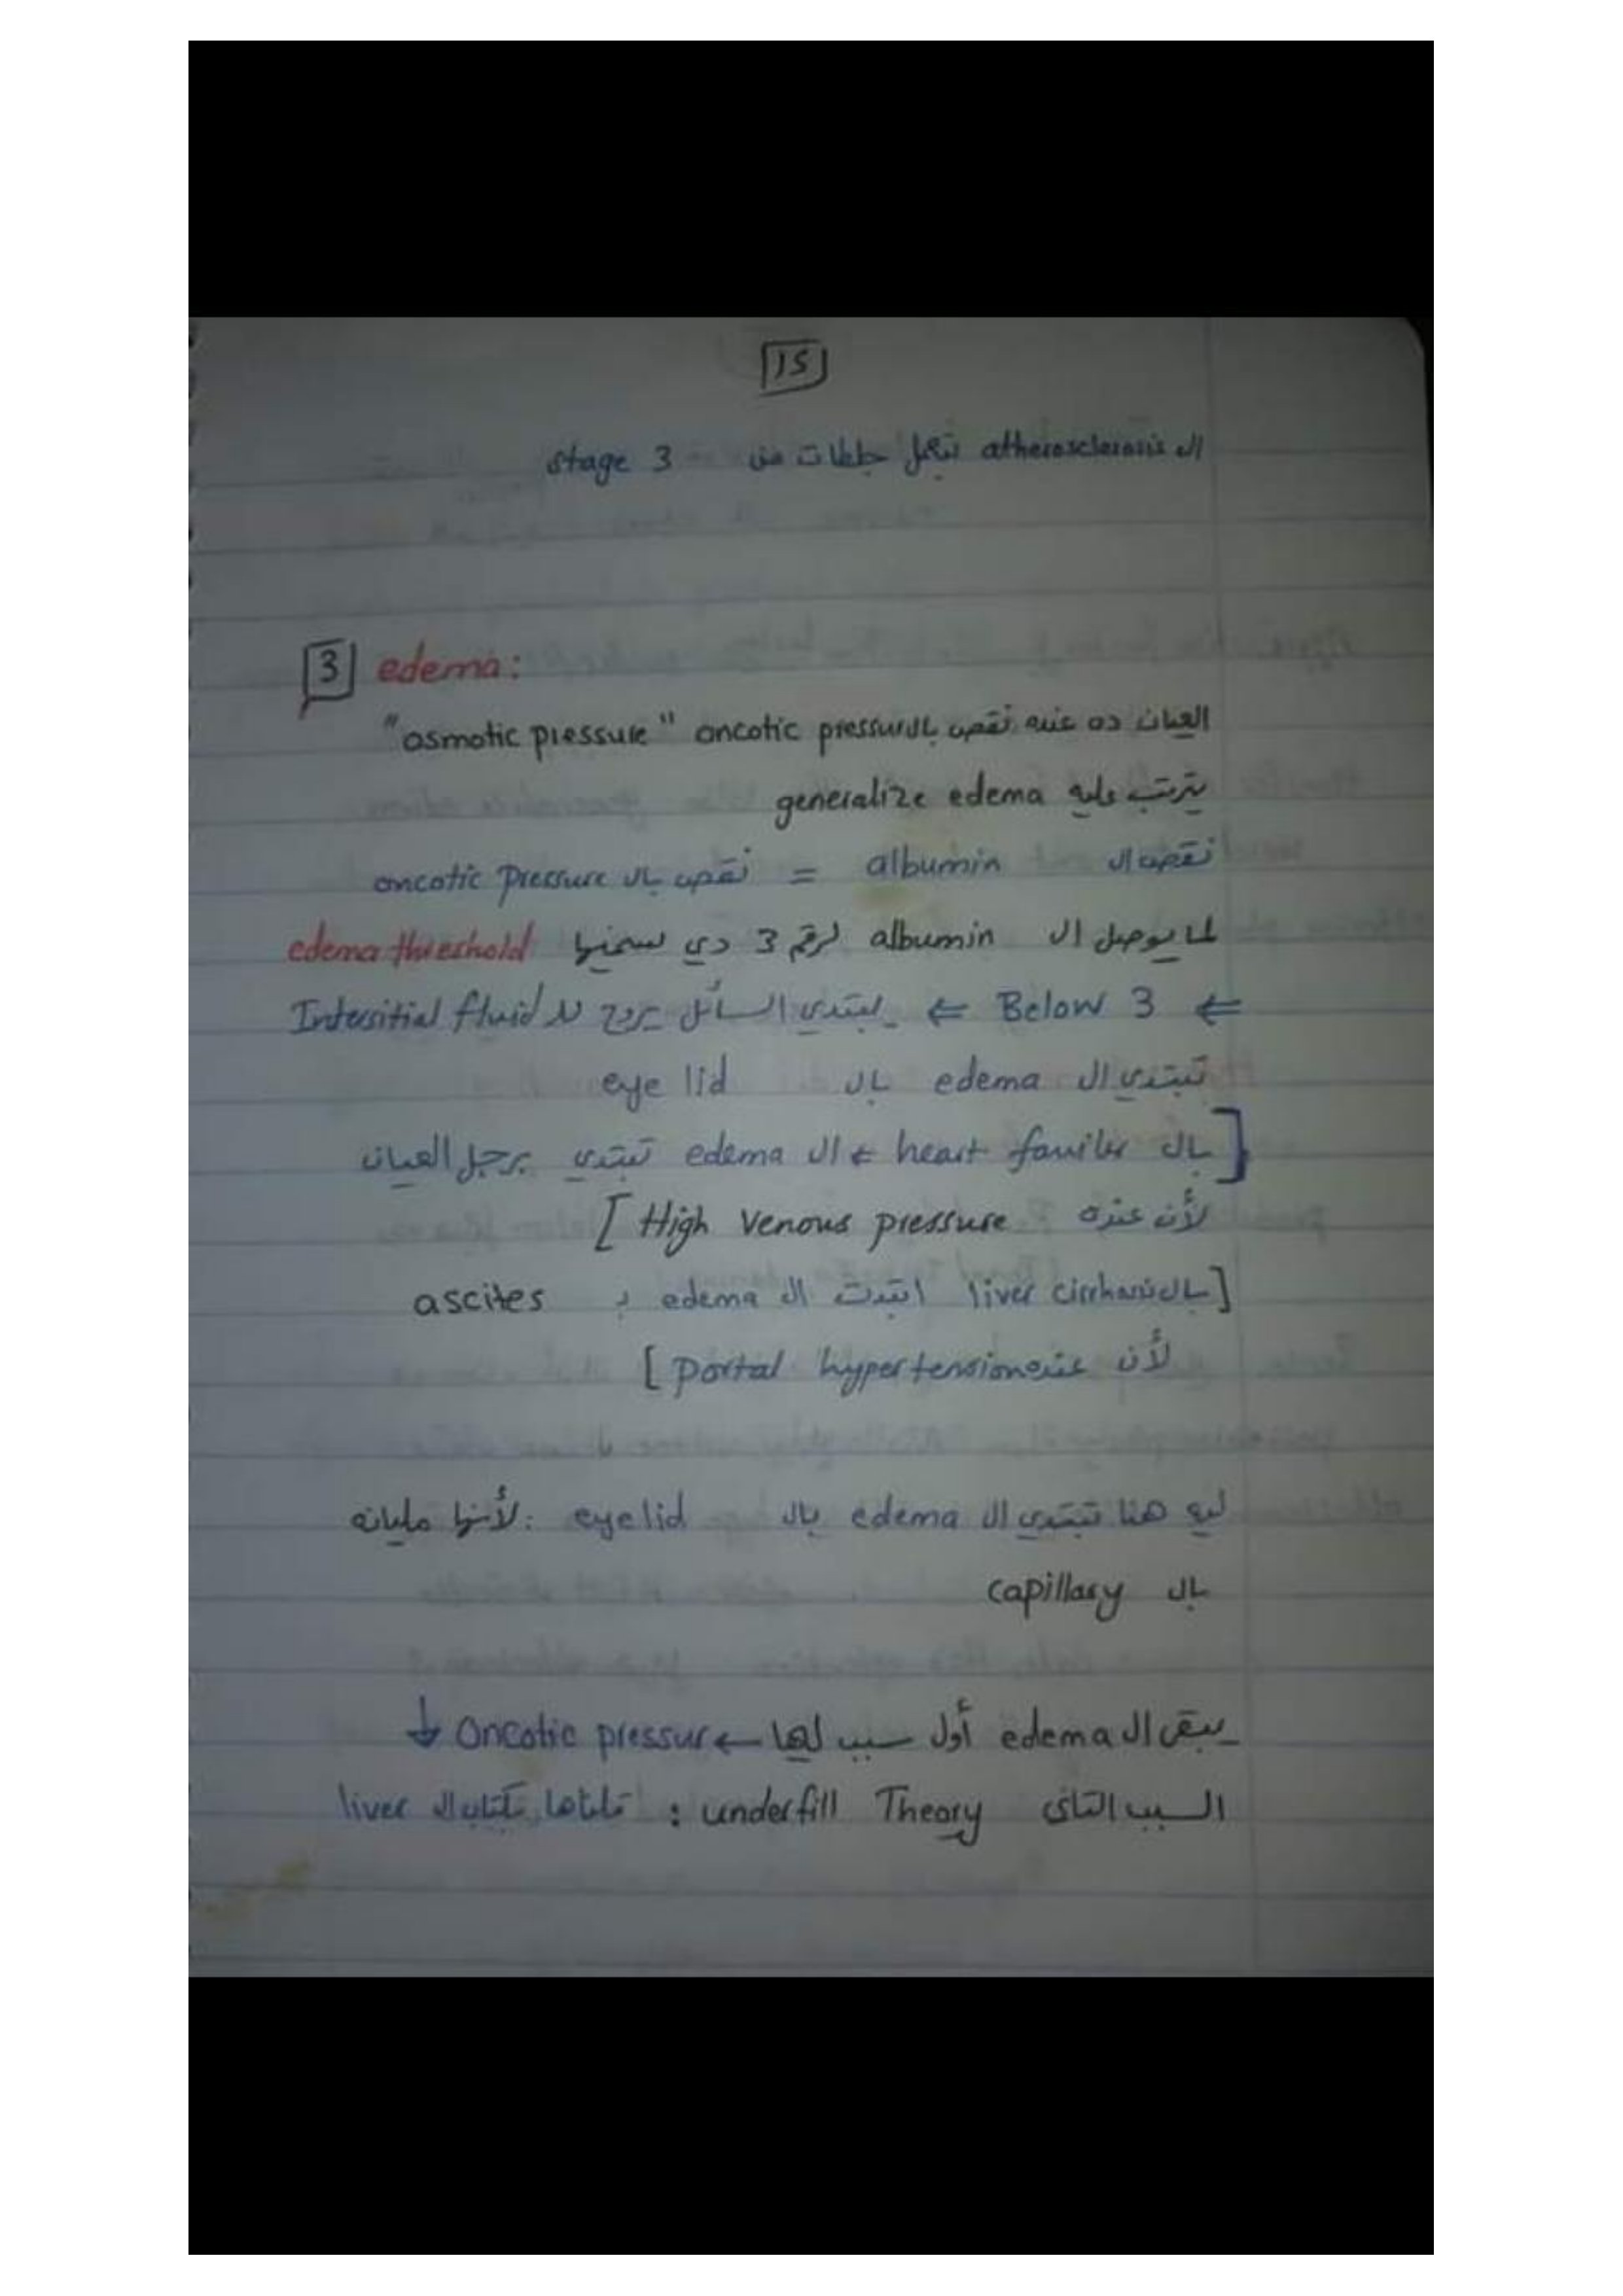 15
ال atherosclerosis تعمل جلطات من stage 3
3 edema:
العيان ده عنده نقص بال oncotic pressur "osmotic pressure"
يترتب عليه generalize edema
نقص ال albumin = نقص بال oncotic pressure
لما يوصل ال albumin لرقم 3 دي سمتها edema threshold
⇐ Below 3 ⇐ يبتدي السائل يروح لل Intersitial fluid
تبتدي ال edema بال eye lid
[بال heart failur ⇐ ال edema تبتدي برجل العيان
لأن عنده High venous pressure]
[بال liver cirrhosis ابتدت ال edema ب ascites
لأن عنده portal hypertension]
ليه هنا تبتدي ال edema بال eyelid : لأنها مليانه
بال capillary
يبقى ال edema أول سبب لها ← Oncotic pressur ↓
السبب التاني underfill Theory : قلناها بكتاب ال liver